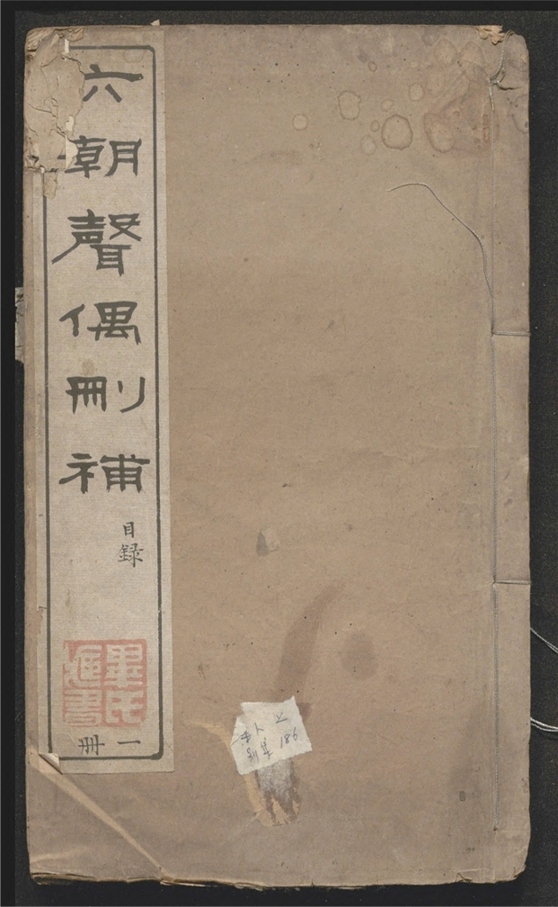 六朝聲偶刪補
目錄
一冊
186